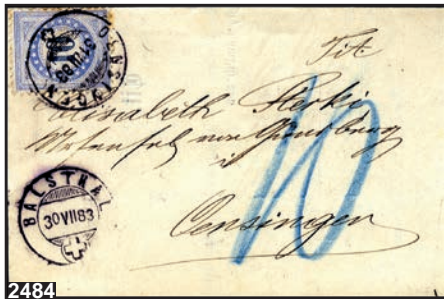 10
OENSINGEN
Tit
Elisabeth Flerki
von
i
Oensingen
10
BALSTHAL
30 VII 83
2484